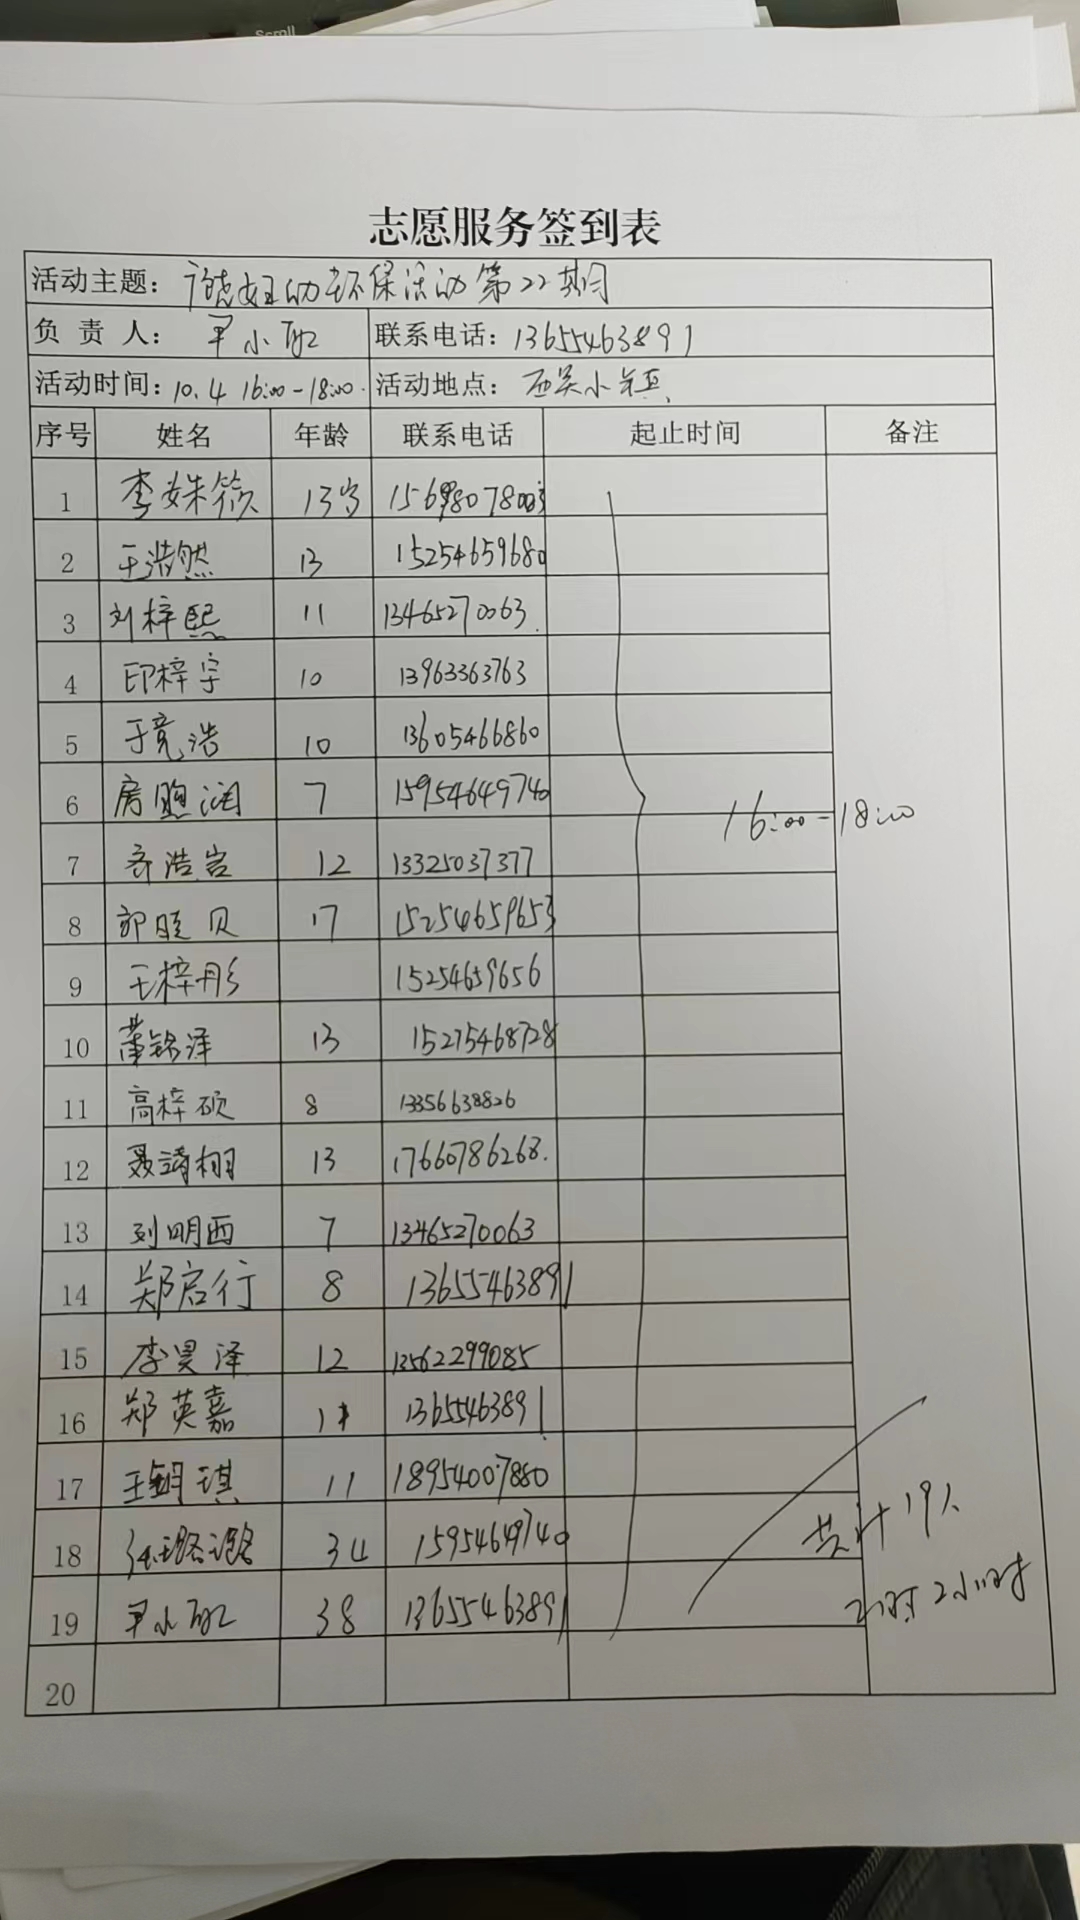 Scroll
志愿服务签到表
活动主题: 广饶妇幼环保活动第22期
负责人: 小配 联系电话: 13655463891
活动时间: 10.4 16:00-18:00. 活动地点: 西吴小镇
序号 姓名 年龄 联系电话 起止时间 备注
1 李姝筱 13岁
2 王浩然 13 15254659680
3 刘梓熙 11 13465270063.
4 印梓宇 10 13963363763
5 于竞浩 10 13605466860
6 房润 7 15954649740
7 齐浩岩 12 13325037377
16:00-18:00
8 郭晓贝 17 15254659653
9 王梓彤 15254659656
10 董铭泽 13 15275468728
11 高梓硕 8 13356638826
12 聂靖栩 13 17660786268.
13 刘明西 7 13465270063
14 郑启行 8 13655463891
15 李昊泽 12 13562299085
16 郑英嘉 11 13655463891
17 王玥琪 11 18954007880
18 张璐璐 34 15954649740
共计19人
19 小配 38 13655463891
2小时
20